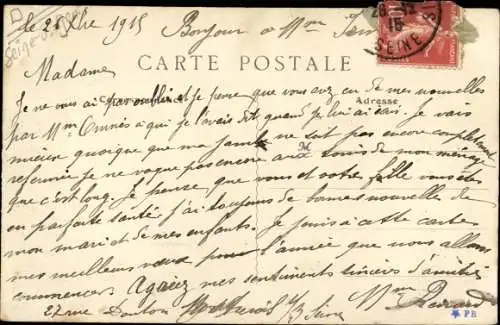 le 28 Xbre 1915 Bonjour à Mme
28 12 15
SEINE
CARTE POSTALE
Madame
Je ne vous ai pas oubliée et je pense que vous avez eu de mes nouvelles
Correspondance
Adresse
par Mme à qui je l'avais dit quand je lui ai écris. Je vais
mieux quoique que ma jambe ne soit pas encore complètement
M
refermée je ne vaque pas encore aux soins de mon ménage
que c'est long. Je pense que vous et votre fille vous êtes
en parfaite santé j'ai toujours de bonnes nouvelles de
mon mari et de mes enfants. Je joins à cette carte
mes meilleurs vœux pour l'année que nous allons
commencer Agréez mes sentiments sincères d'amitiés
27 rue Danton s/Seine Mme
PB